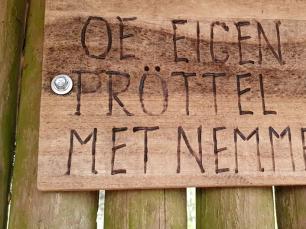 OE EIGEN
PRÖTTEL
MET NEMM